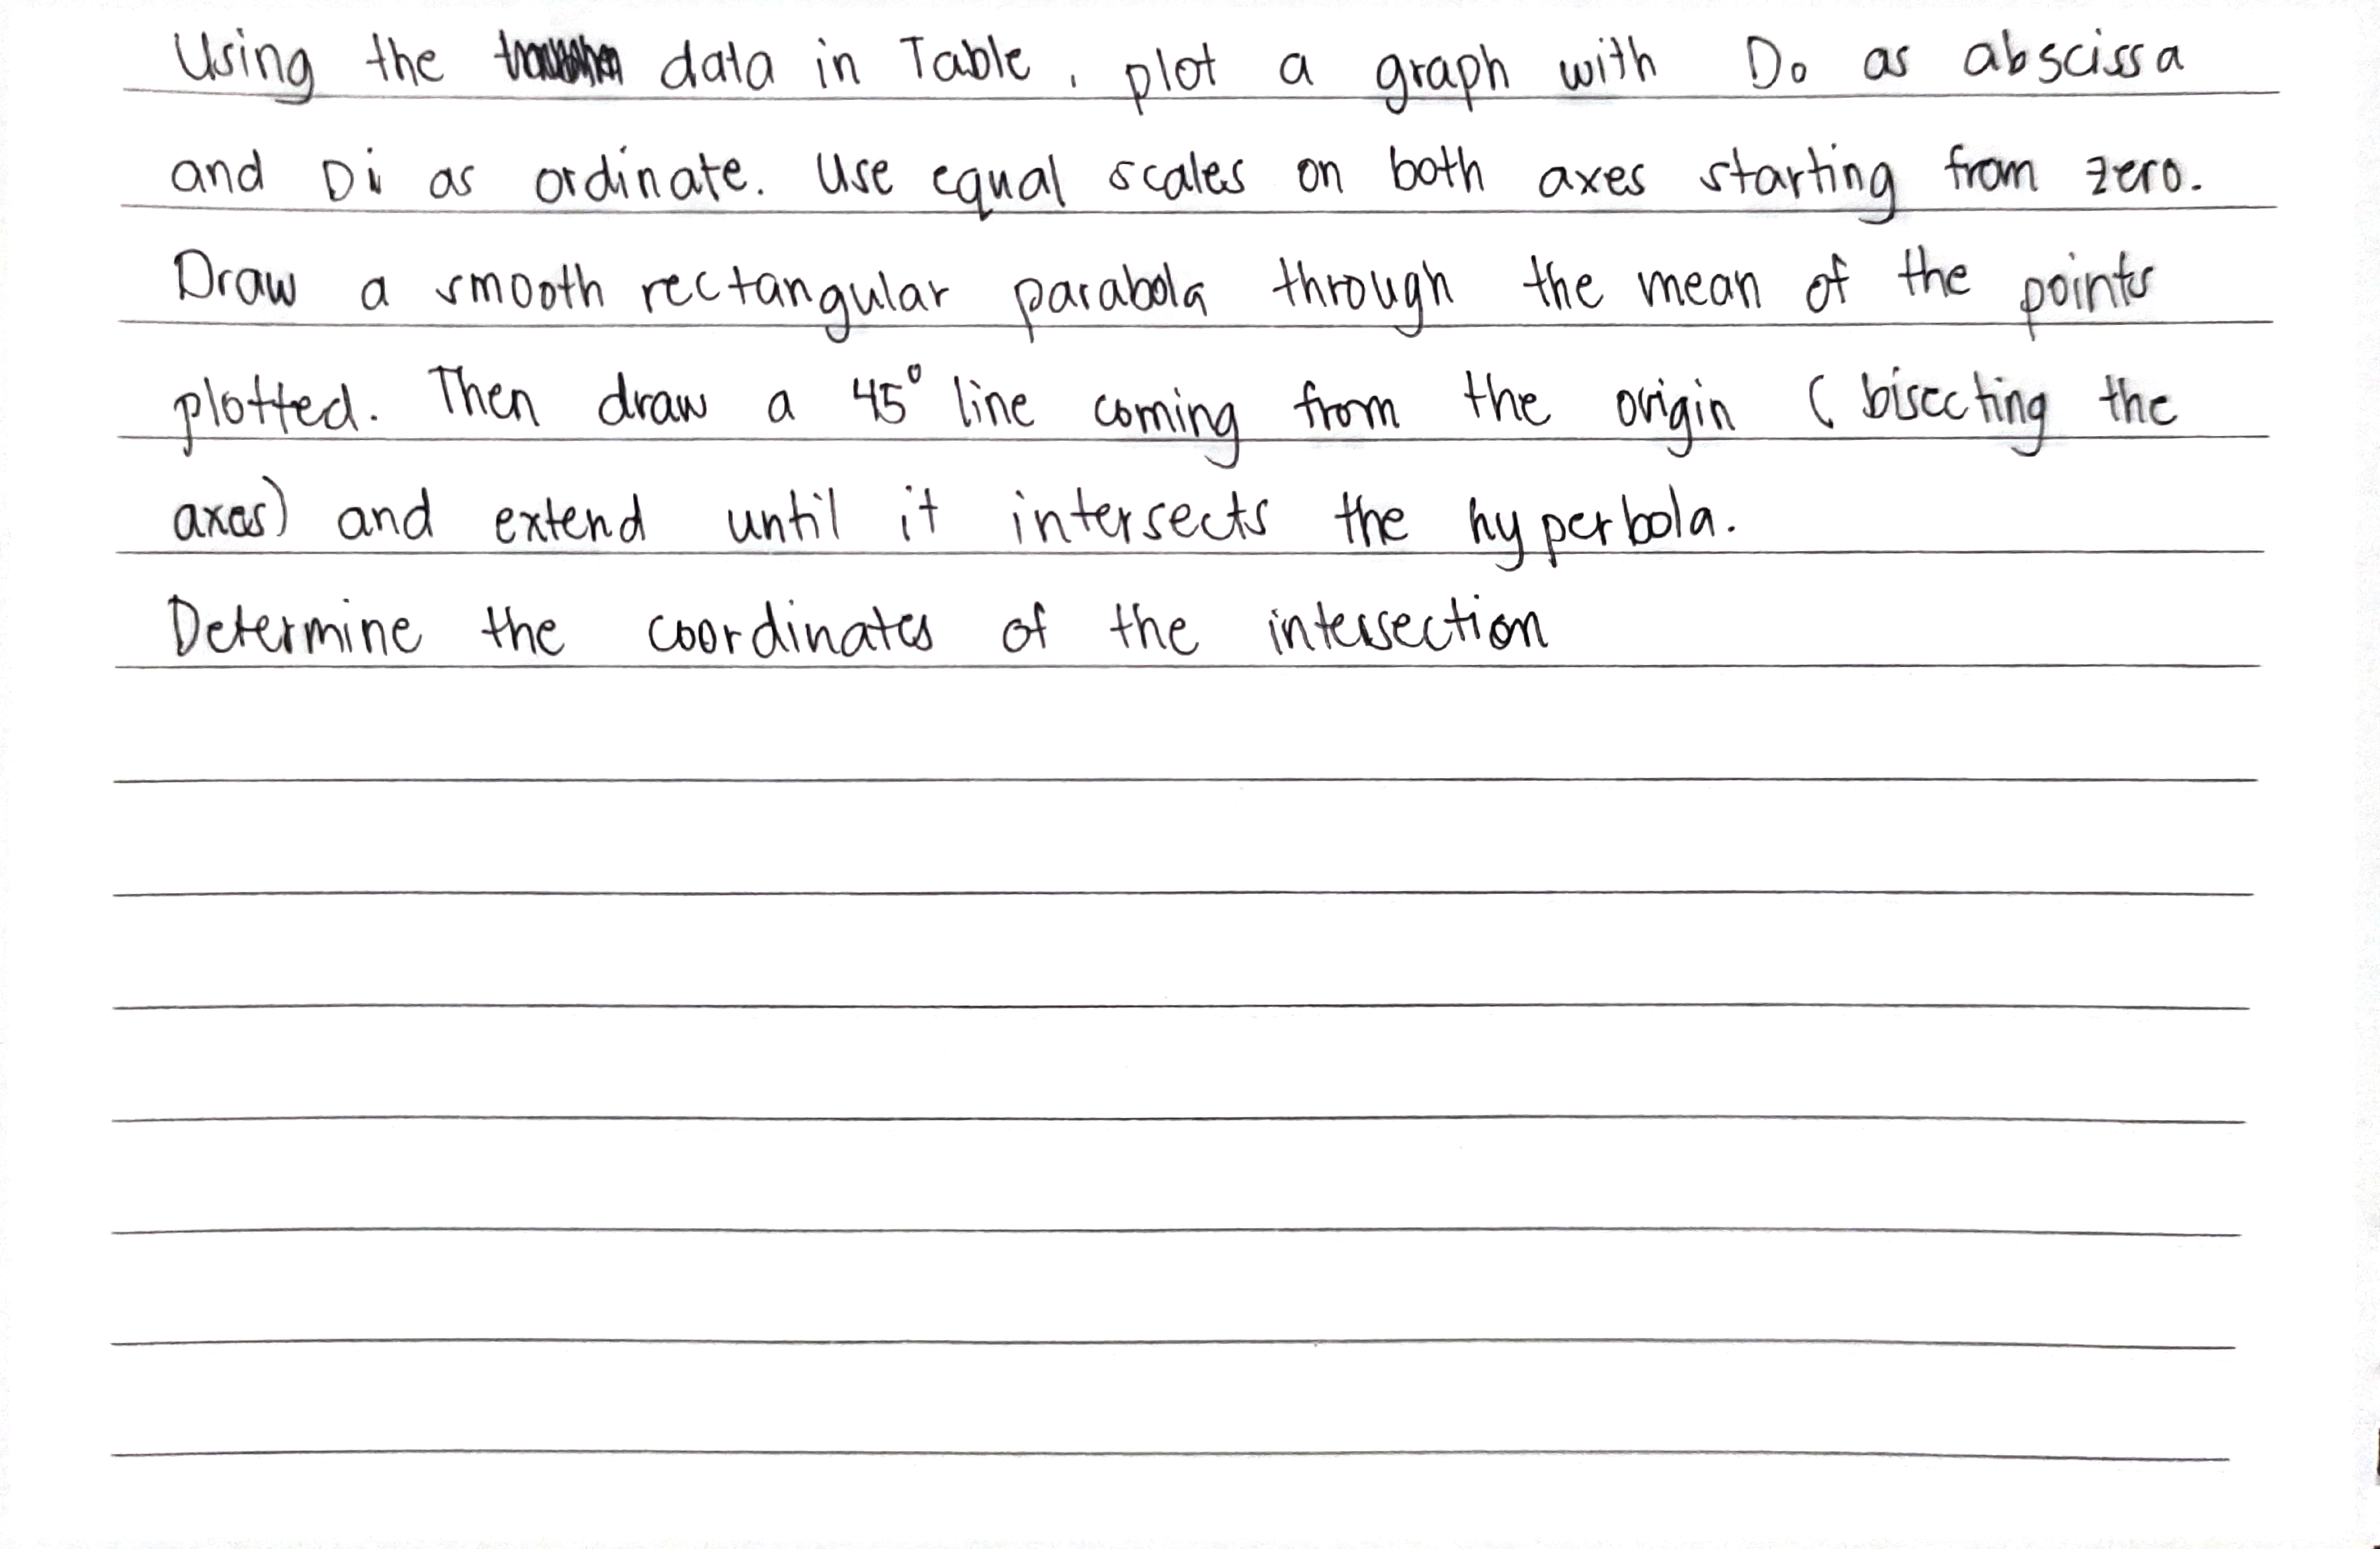 Using the data in Table, plot a graph with Do as abscissa
and Di as ordinate. Use equal scales on both axes starting from zero.
Draw a smooth rectangular parabola through the mean of the points
plotted. Then draw a 45° line coming from the origin (bisecting the
axes) and extend until it intersects the hyperbola.
Determine the coordinates of the intersection